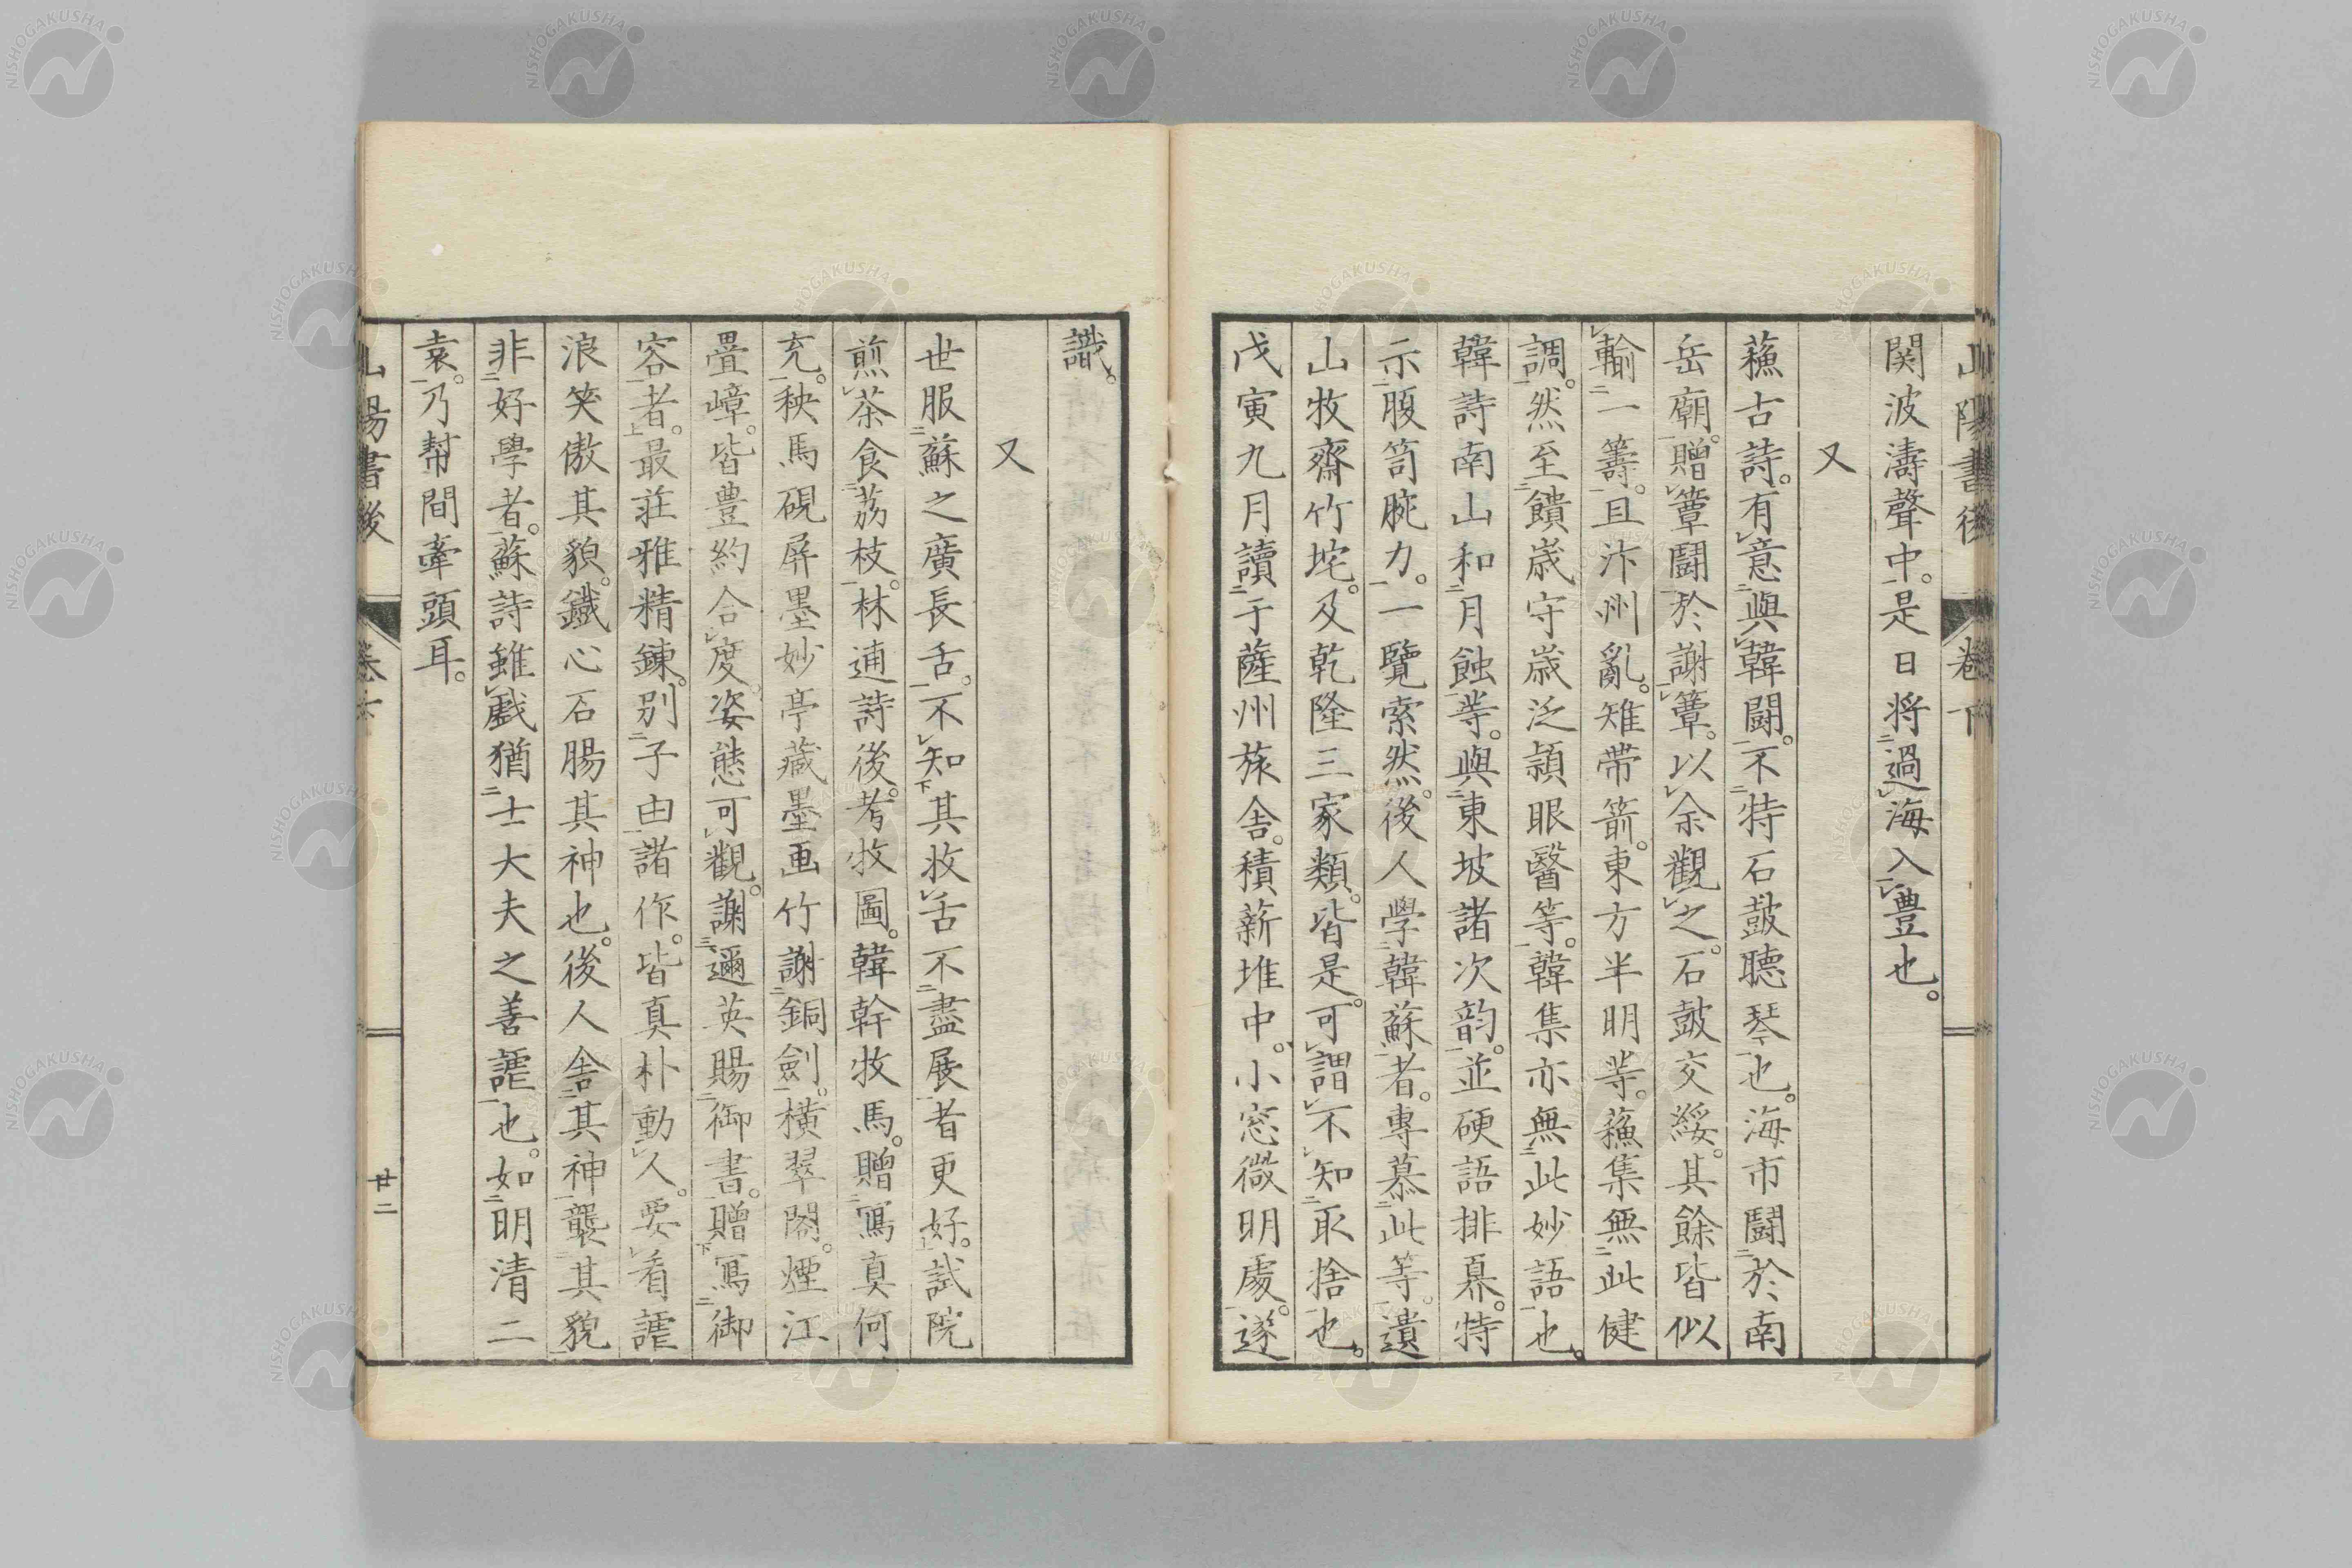 山陽書後 卷下
関波濤聲中。是日将過海入豊也。
又
蘓古詩。有意與韓闘。不特石鼓聽琴也。海市闘於南
岳廟。贈簟闘於謝簟。以余觀之。石鼓交綏。其餘皆似
輸一籌。且汴州亂。雉帶箭。東方半明等。蘓集無此健
調。然至饋歳守歳泛潁眼醫等。韓集亦無此妙語也。
韓詩南山和月蝕等。與東坡諸次韵。並硬語排奡。特
示腹笥腕力。一覽索然。後人學韓蘇者。專慕此等。遺
山牧齋竹垞。及乾隆三家類。皆是。可謂不知取捨也。
戊寅九月讀于薩州旅舎。積薪堆中。小窓微明處。遂
識。
又
世服蘇之廣長舌。不知其收舌不盡展者更好。試院
煎茶食茘枝。林逋詩後。老牧圖。韓幹牧馬。贈寫真何
充。秧馬硯屏墨妙亭藏墨画竹謝銅劍。橫翠閣。煙江
疊嶂。皆豊約合度。姿態可觀。謝邇英賜御書。贈寫御
容者。最莊雅精鍊。別子由諸作。皆真朴動人。要看謔
浪笑傲其貌。鐵心石腸其神也。後人舎其神襲其貌
非好學者。蘇詩雖戯猶士大夫之善謔也。如明清二
袁。乃幇間牽頭耳。
山陽書後 卷下 廿二